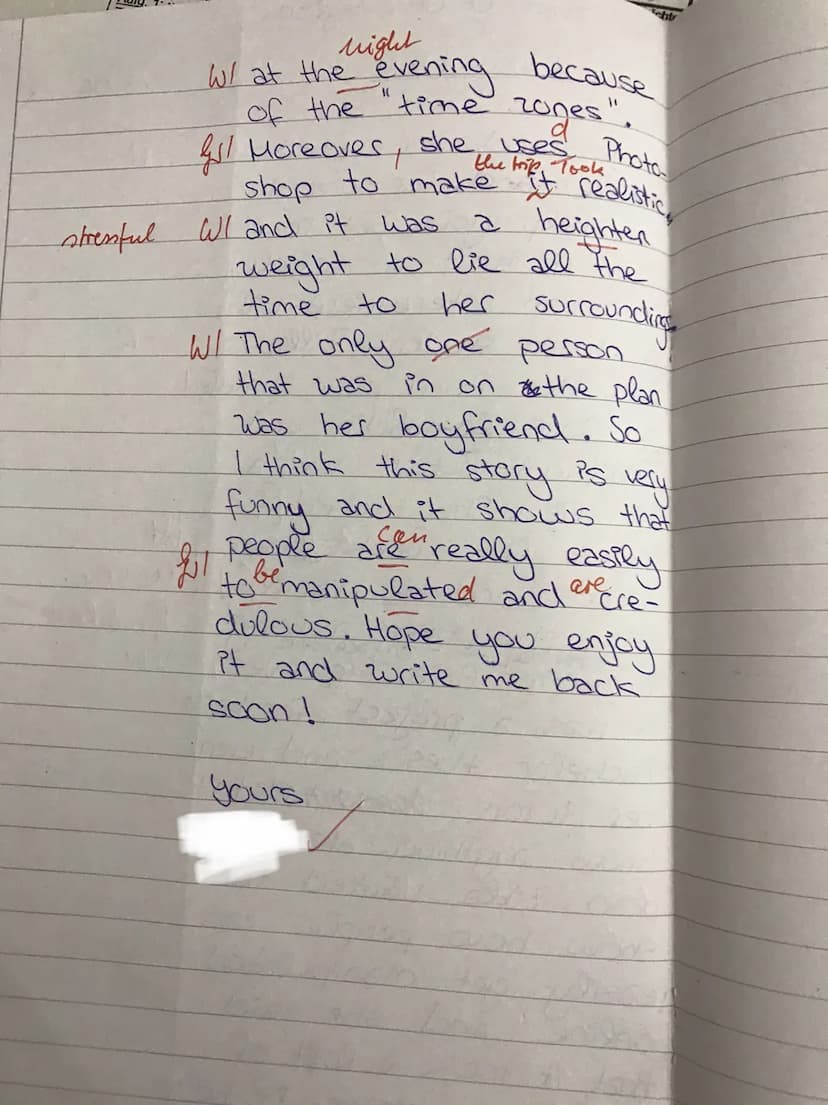 night
W/ at the evening because
of the "time zones".
d
gr/ Moreover, she uses Photo-
the trip look
shop to make it realistic,
stressful W/ and it was a heighten
weight to lie all the
time to her surrounding
W/ The only one person
that was in on the plan
was her boyfriend. So
I think this story is very
funny and it shows that
can
people are really easily
gr/ be are
to manipulated and cre-
dulous. Hope you enjoy
it and write me back
soon!
yours